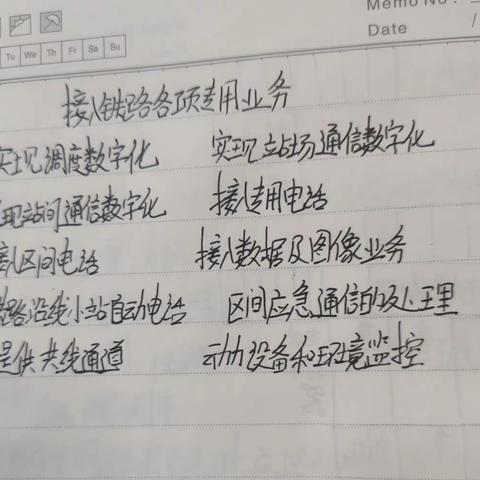 Memo No.
Date /
Tu We Th Fr Sa Su
接入铁路各项专用业务
实现调度数字化 实现站场通信数字化
现站间通信数字化 接入专用电话
接入区间电话 接入数据及图像业务
路沿线小站自动电话 区间应急通信的处理
提供共线通道 动力设备和环境监控